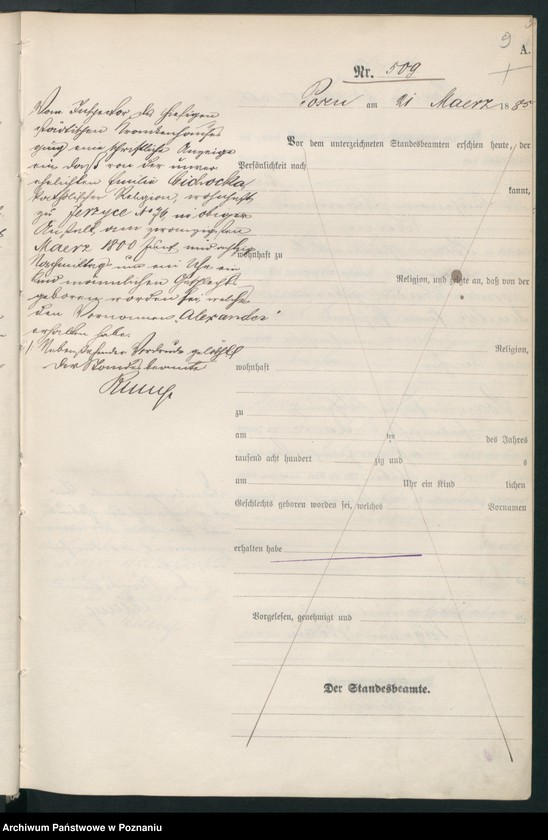 9
A.
Nr. 509
Posen am 21 Maerz 1885
Vom Inspector des hiesigen
städtischen Krankenhauses
ging eine schriftliche Anzeige
ein daß von der unver
ehelichten Emilie Cichocka
katholischer Religion, wohnhaft
zu Jerzyce No in obiger
Anstalt am zwanzigsten
Maerz 1800 fünf und achtzig
Nachmittags um ein Uhr ein
Kind maennlichen Geschlechts
geboren worden sei, welches
den Vornamen "Alexander"
erhalten habe.
Nebenstehender Vordruck gelöscht
Der Standesbeamte
Vor dem unterzeichneten Standesbeamten erschien heute, der
Persönlichkeit nach
kannt,
wohnhaft zu
Religion, und zeigte an, daß von der
Religion,
wohnhaft
zu
am ten des Jahres
tausend acht hundert zig und s
um Uhr ein Kind lichen
Geschlechts geboren worden sei, welches Vornamen
erhalten habe
Vorgelesen, genehmigt und
Der Standesbeamte.
Archiwum Państwowe w Poznaniu